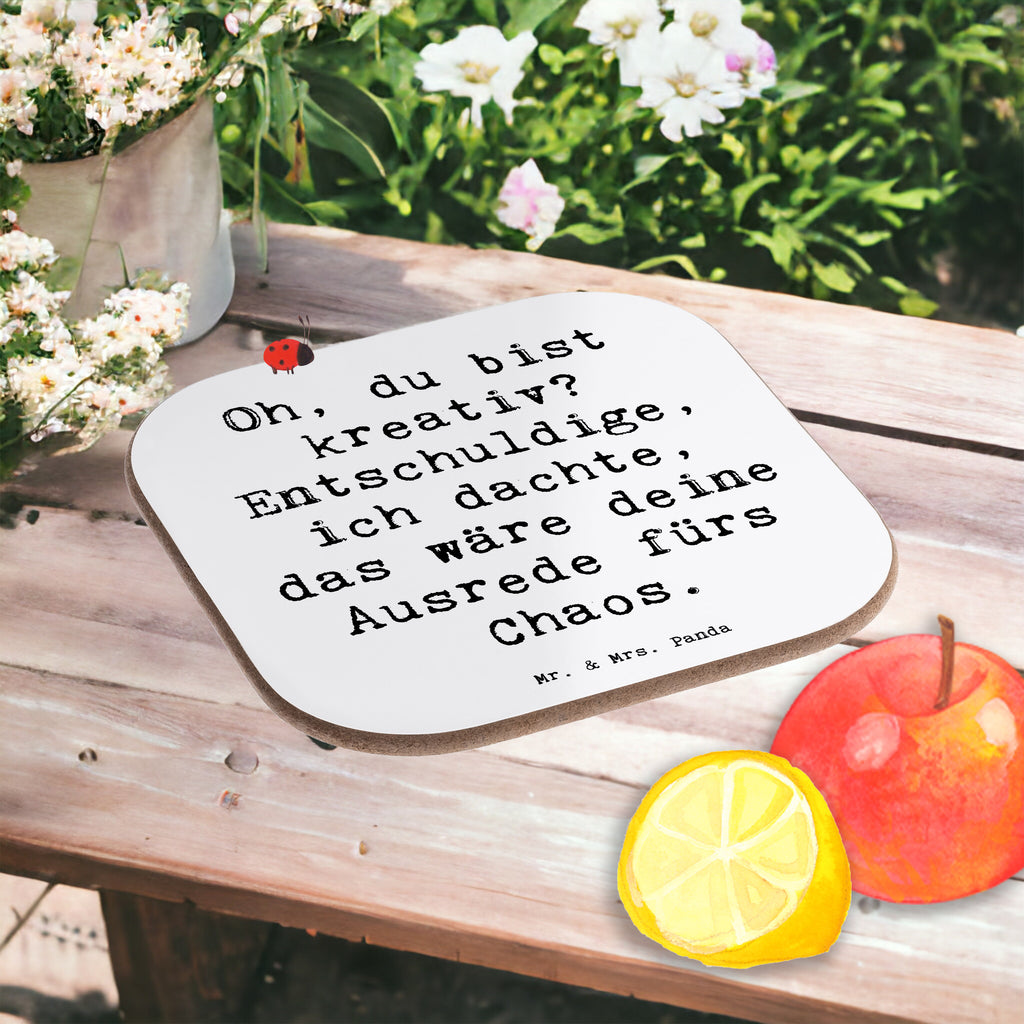 Oh, du bist
kreativ?
Entschuldige,
ich dachte,
das wäre deine
Ausrede fürs
Chaos.
Mr. & Mrs. Panda